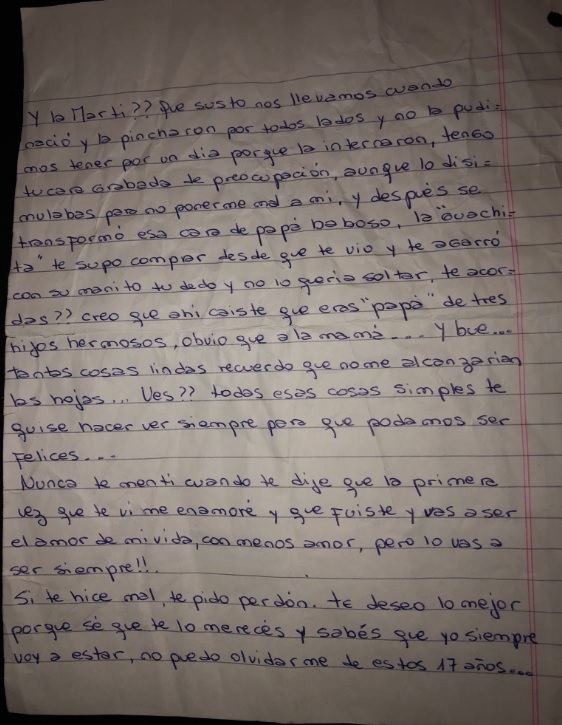 Y la Marti?? Que susto nos llevamos cuando
nació y la pincharon por todos lados y no la pudi=
mos tener por un dia porque la internaron, tengo
tu cara grabada de preocupación, aunque lo disi=
mulabas para no ponerme mal a mi, y después se
transformó esa cara de papá baboso, la "guachi=
ta" te supo comprar desde que te vio y te agarró
con su manito tu dedo y no lo queria soltar, te acor=
das?? creo que ahi caiste que eras "papá" de tres
hijos hermosos, obvio que a la mamá.... Y bue...
tantas cosas lindas recuerdo que no me alcanzarian
las hojas... Ves?? todas esas cosas simples te
quise hacer ver siempre para que podamos ser
felices....
Nunca te menti cuando te dije que la primera
vez que te vi me enamoré y que fuiste y vas a ser
el amor de mi vida, con menos amor, pero lo vas a
ser siempre!!.
Si te hice mal, te pido perdón. te deseo lo mejor
porque sé que te lo merecés y sabés que yo siempre
voy a estar, no puedo olvidarme de estos 17 años....